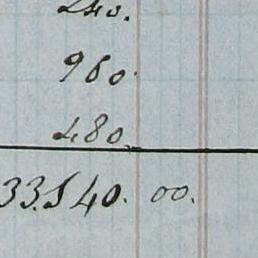 240.
960.
480.
33.540. 00.